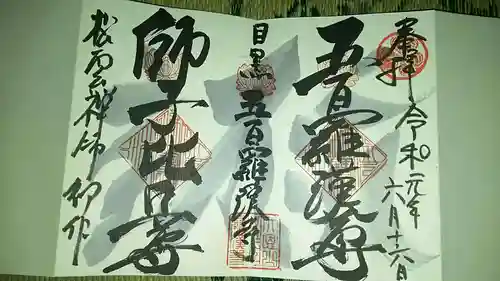 奉拝 令和元年六月十六日
五百羅漢尊
目黒 五百羅漢寺
師子比丘尊
松雲禅師御作